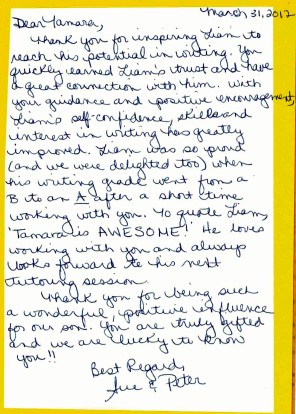 March 31, 2012
Dear Tamara,
Thank you for inspiring Liam to
reach his potential in writing. You
quickly earned Liam's trust and have
a great connection with him. With
your guidance and positive encouragement,
Liam's self-confidence, skills and
interest in writing has greatly
improved. Liam was so proud
(and we were delighted too) when
his writing grade went from a
B to an A after a short time
working with you. To quote Liam,
'Tamara is AWESOME!' He loves
working with you and always
looks forward to his next
tutoring session.
Thank you for being such
a wonderful, positive influence
for our son. You are truly gifted
and we are lucky to know
you!!
Best Regards,
Sue & Peter